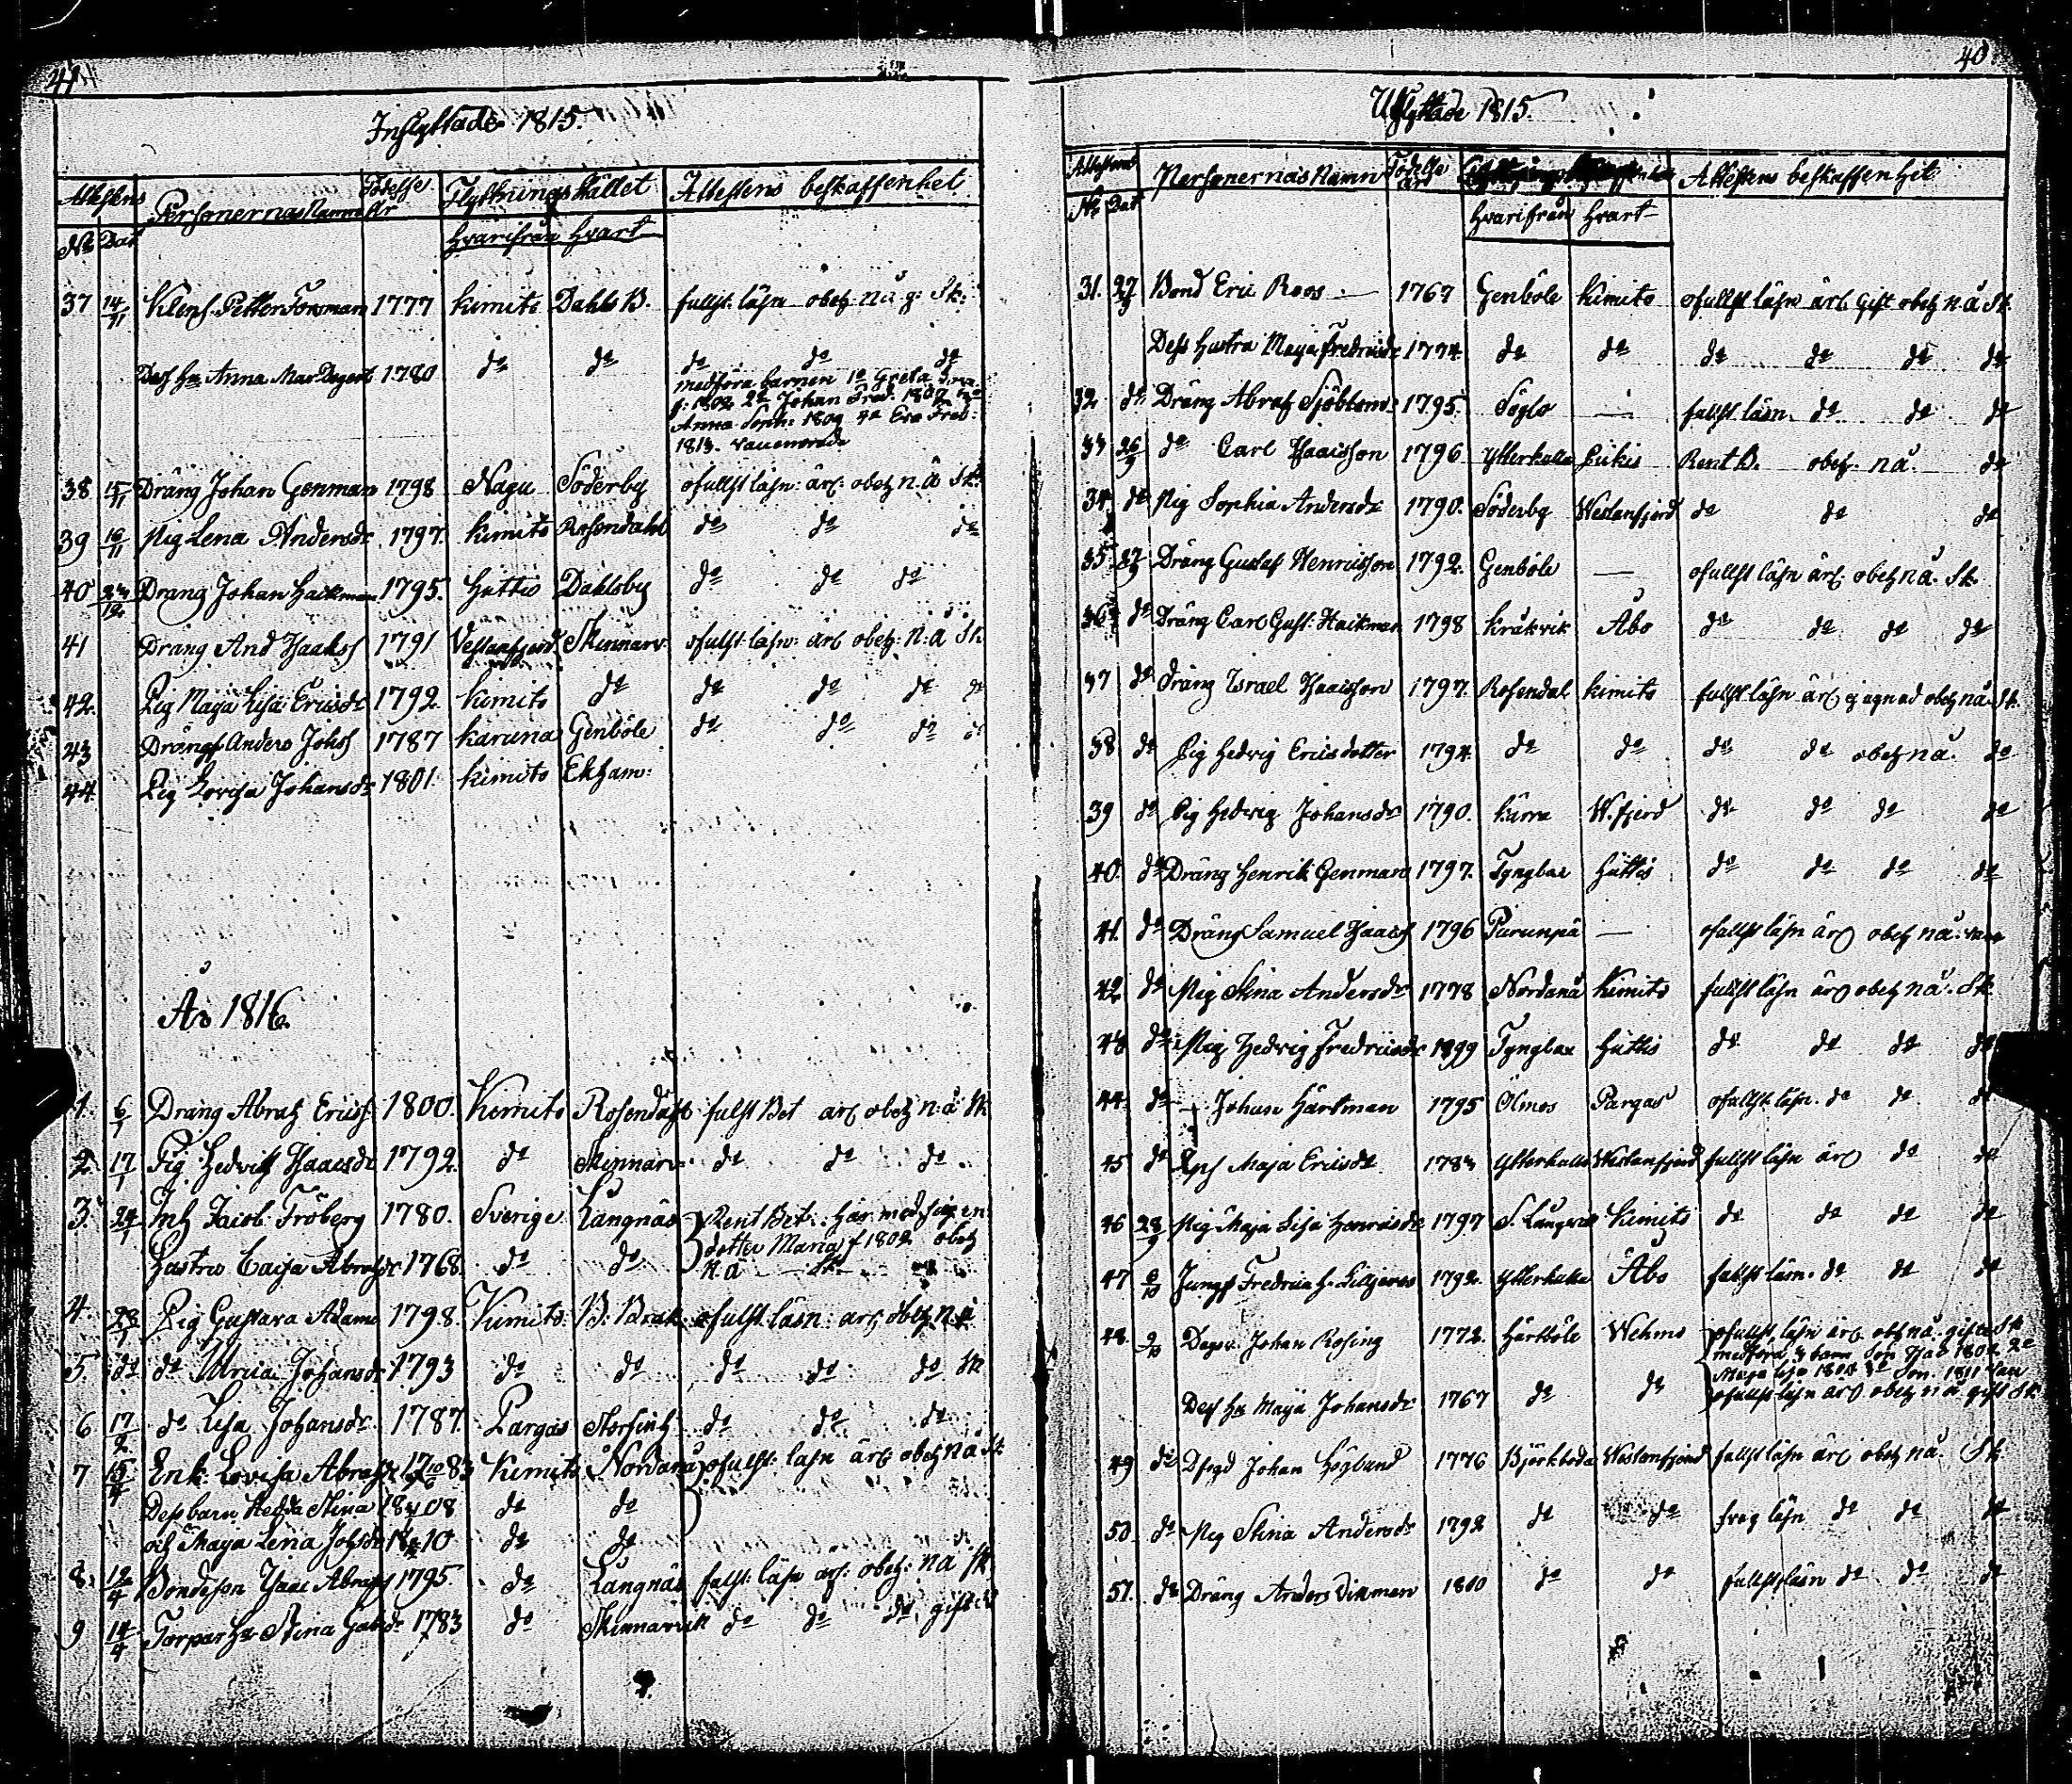 41
Inflyttade 1815.
Attestens Personernas Namn Födelse År Flyttnings stället Attestens beskaffenhet
No Dat hvarifrån hvart
37 14/11 Petter Forsman 1777 Kimito Dahlsb. fullst: läsn obeh: n.å.g: Sk:
Dess Hu Anna Mar Degert 1780 do do do do do
medföra barnen 1o Greta
f: 1802 2o Johan Fred. 1807
Anna Soph: 1809 4o Eva Fred:
1813. vaccinerade
38 15/11 Dräng Johan Genman 1798 Nagu Söderby ofullst läsn: ärl: obeh n.å Sk:
39 16/11 Pig Lena Andersdr 1797. Kimito Rosendahl do do do
40 23/12 Dräng Johan Hackman 1795. Hittis Dahlsby do do do
41 Dräng And Isaakss 1791 Vestanfjerd Skinnarv. ofullst läsn: ärl obeh: n.å Sk
42. Pig Maja Lisa Ericsdr 1792. Kimito do do do do do
43 Drängs Anders Johss 1787 Karuna Genböle do do do do
44. Pig Lovisa Johansdr 1801. Kimito Ekham:
År 1816.
1. 6/1 Dräng Abrah Ericss. 1800. Kimito Rosendahl fulst Bet ärl obeh n.å Sk
2. 17/1 Pig Hedvig Isaacsdr 1792. do Skinnarv. do do do
3. 24/1 Inh Jacob Fröberg 1780. Sverige Långnäs Rent Bet: Har med sig en
dotter Maria f 1802 obeh
Hustru Caisa Abrahsdr 1768. do do n.å Sk
4. 23/1 Pig Gustava Adams 1798. Kimito B. ofulst läsn: ärl obeh n.å
5. do do Ulrica Johansdr 1793 do do do do do Sk
6 17/2 do Lisa Johansdr. 1787. Pargas Storfinh do do do
7 Enk: Lovisa Abrahsdr 1783 Kimito Nordanå ofullst: läsn ärl: obeh n.å Sk
Dess barn Hedda Stina 1808 do do
och Maja Lena Johsdr 1810 do do
8. 12/4 Bondeson Isaac Abrahss 1795. do Långnäs fulst: läsn ärl: obeh: n.å Sk
9 14/4 Torpar Hu Stina Gabsdr 1783 do Skinnarvik do do do gift do
40
Utflyttade 1815.
Attestens Personernas Namn Födelse År Attestens beskaffenhet
No Dat hvarifrån hvart
31. 27 Bond Eric Roos 1767 Genböle Kimito ofullst läsn ärl Gift obeh n.å Sk.
Dess Hustru Maja Fredricsdr 1774. do do do do do do
32 do Dräng Abrah Sjöblom 1795. Söglo — fullst läsn. do do do
33 26/9 do Carl Isaacsson 1796 Ytterkulla Bikis Rent B. obeh. n.å. do
34. do Pig Sophia Andersdr 1790. Söderby Westanfjerd do do do
35. 27 Dräng Gustaf Henricsson 1792. Genböle — ofullst läsn ärl. obeh n.å. Sk.
36 do Dräng Carl Gust. Hackman 1798 Kråkvik Åbo do do do do
37 do Dräng Israel Isaacsson 1797. Rosendal Kimito fullst läsn ärl ej egnad obeh n.å. Sk.
38 do Pig Hedvig Ericsdotter 1794. do do do do obeh n.å. do
39 do Pig Hedvig Johansdr 1790. Kärra W.fjerd do do do do
40. do Dräng Henrik Genman 1797. Tynglax Hittis do do do do
41. do Dräng Samuel Isaacss 1796 Purunpä — ofullst läsn ärl obeh n.å.
42 do Pig Stina Andersdr 1778 Nordanå Kimito fullst läsn ärl obeh n.å. Sk
43 do Pig Hedvig Fredricsdr 1799 Tynglax Hittis do do do do
44. do — Johan Hartman 1795 Ölmos Pargas ofullst läsn. do do do
45 do Maja Ericsdr 1783 Ytterkulla Westanfjerd fullst läsn ärl do do
46 28/9 Pig Maja Lisa Henricsdr 1797 S. Långvik Kimito do do do do
47 6/10 Jungf Fredrica H. Liljeros 1792. Ytterkulla Åbo fullst läsn. do do do
48. 9/10 Dagsv. Johan Rosing 1772. Härtböle Wehmo ofullst läsn ärl obh n.å. gift Sk
medföra 3 barn Son Isac 1802 2o
Maja Lisa 1808 3o Son. 1811
Dess Hu Maja Johansdr 1767 do do ofullst läsn ärl obeh n.å. gift Sk.
49 do Johan Höglund 1776 Björkboda Westanfjerd fullst läsn ärl obeh n.å. Sk.
50 do Pig Stina Andersdr 1792 do do läsn do do do
51. do Dräng Anders Dikman 1810 do do fullst läsn do do do